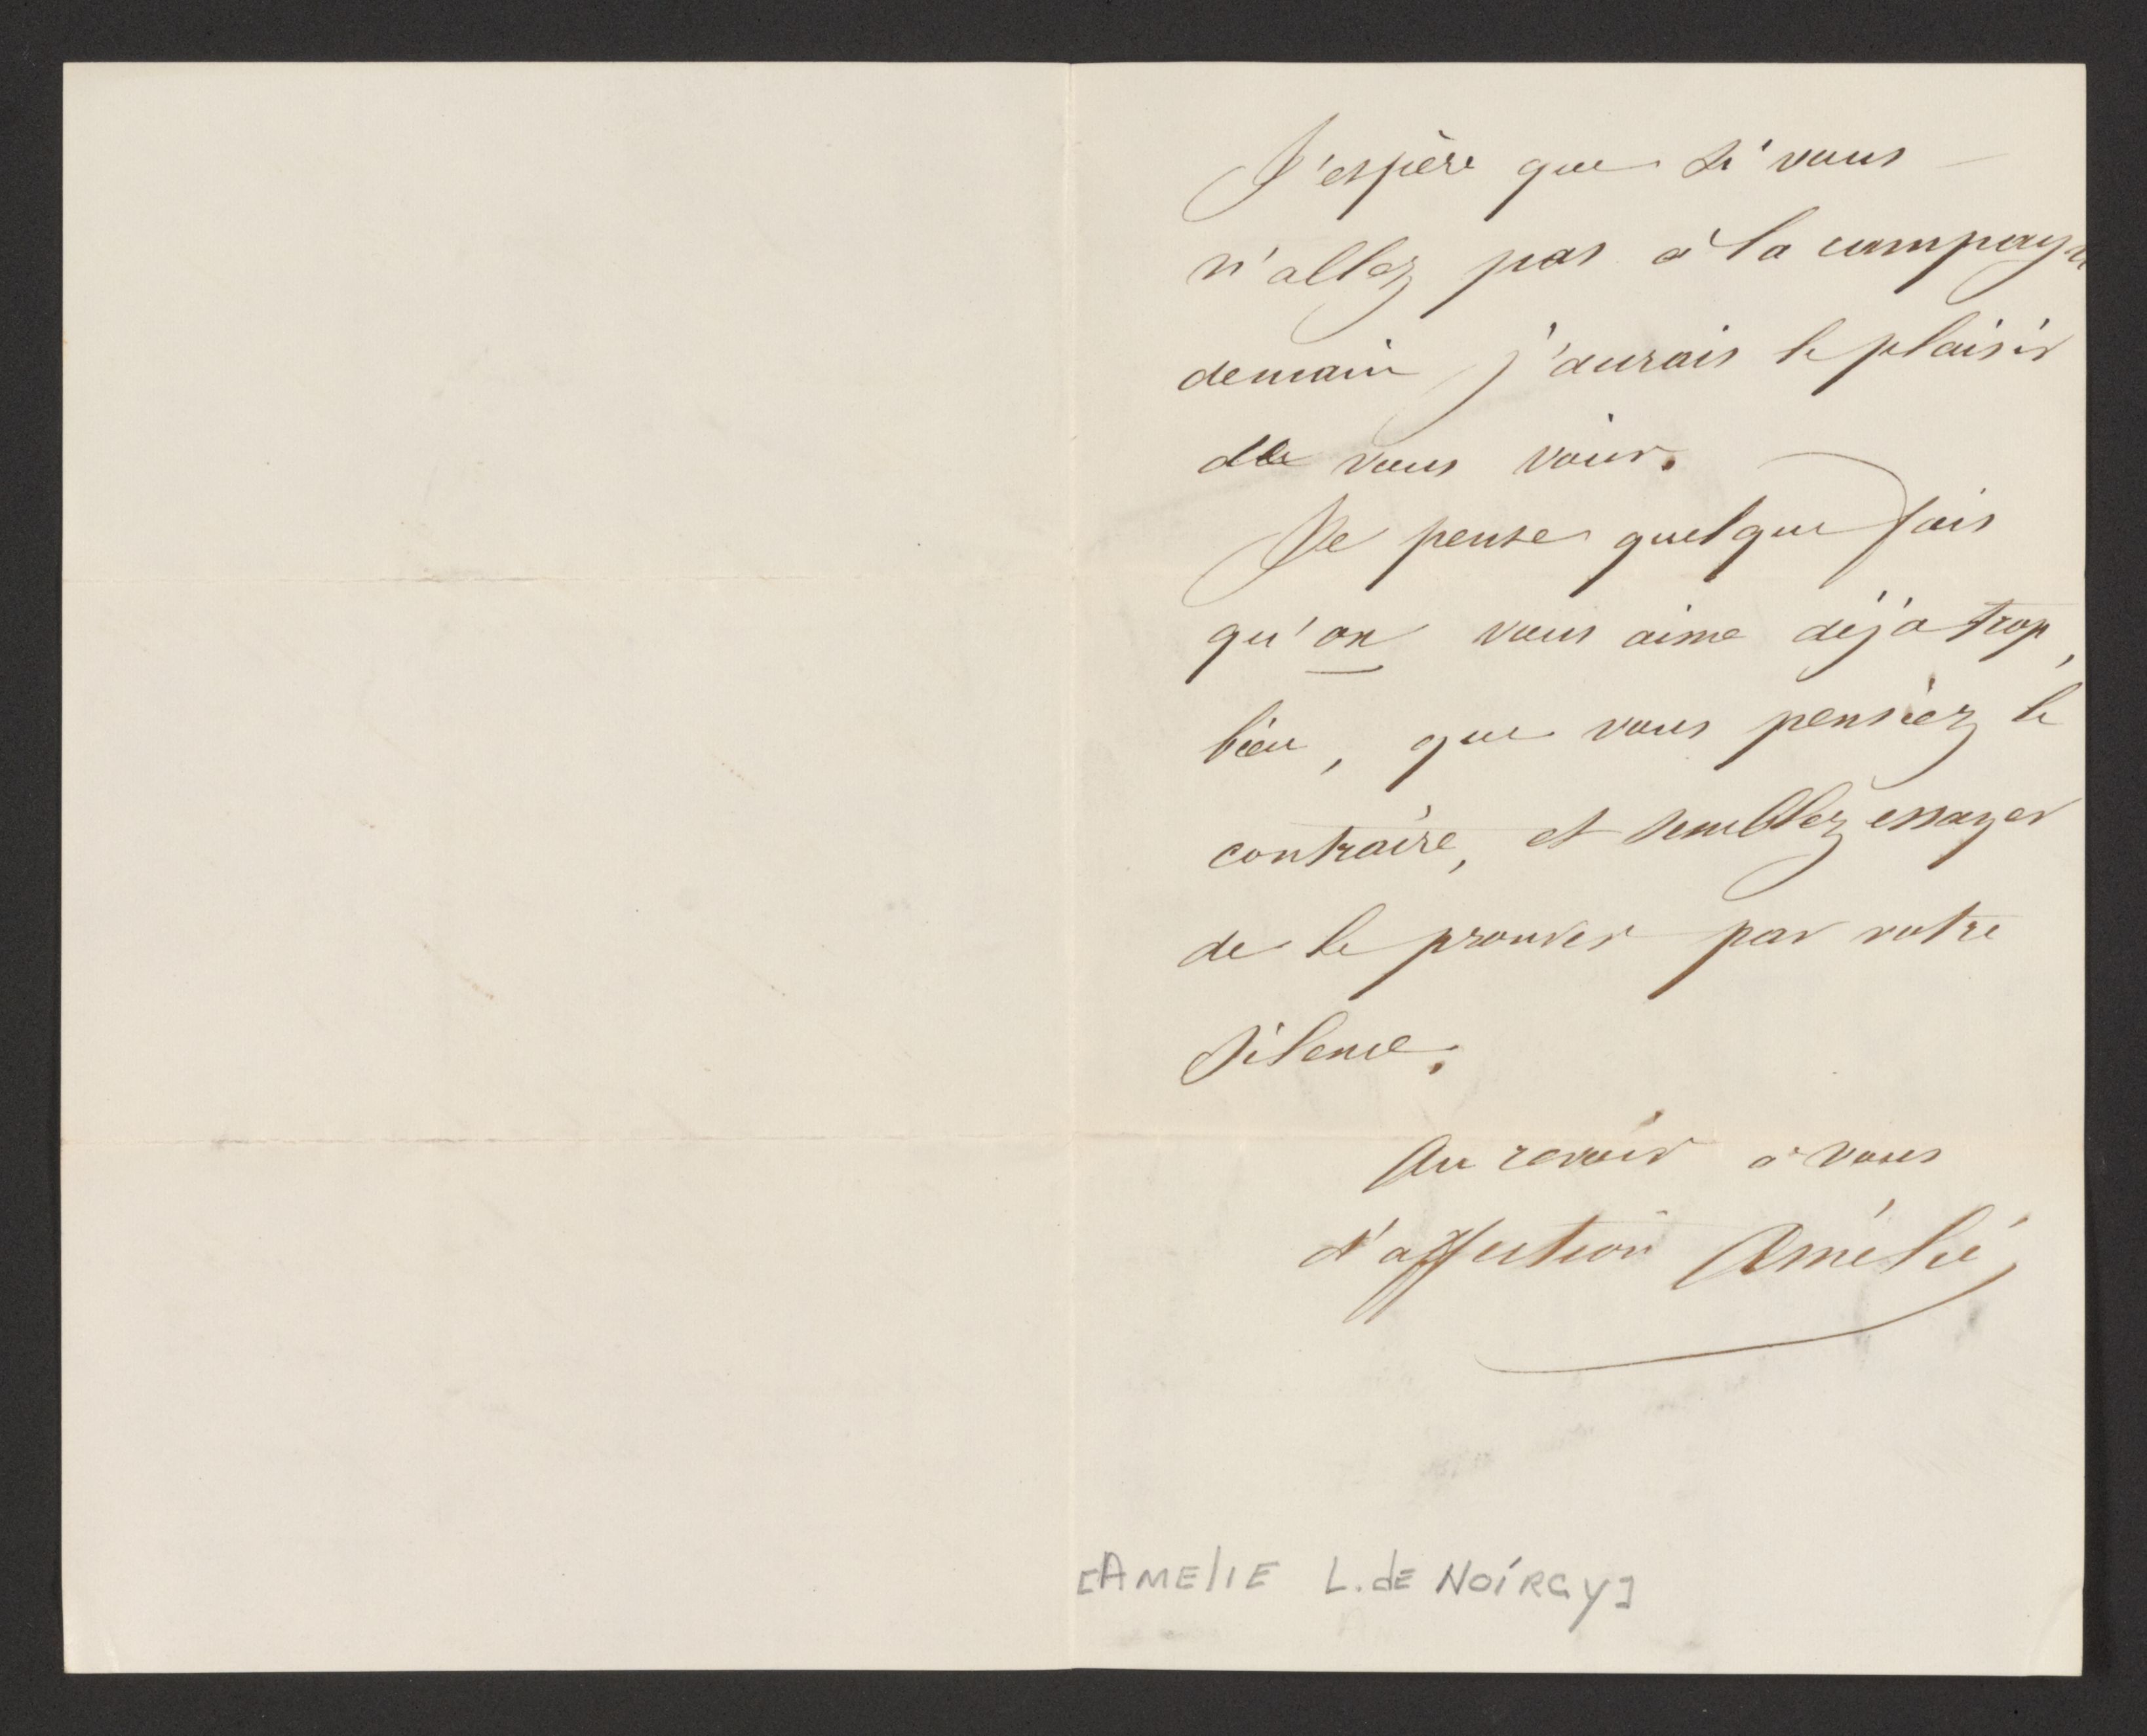 J'espère que si vous
n'allez pas à la campagne
demain j'aurais le plaisir
de vous voir.
Je pense quelque fois
qu'on vous aime déja trop,
bien, que vous pensiez le
contraire, et semblez essayer
de le prouver par votre
silence.
Au revoir à vous
d'affection Amélie
[AMElIE L. dE NOIRGY]